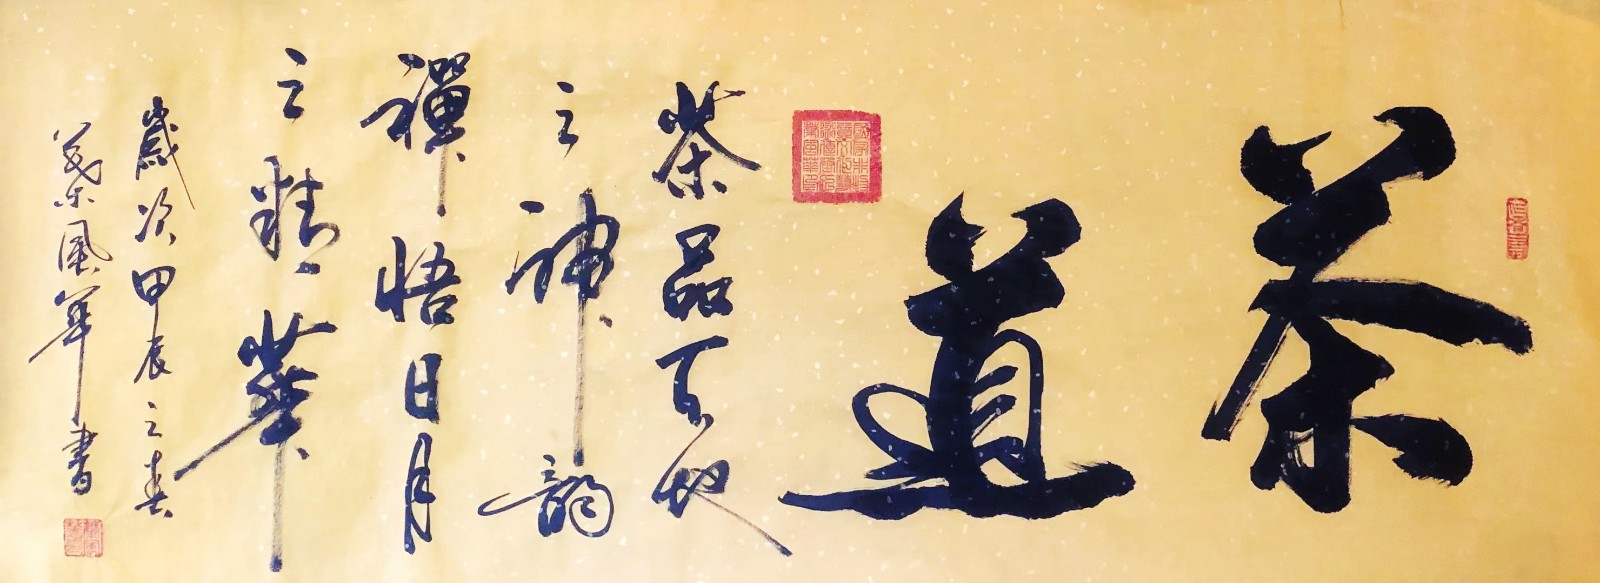 茶道
茶品天地
之神韵
禪悟日月
之精華
歲次甲辰之春
葉風華書